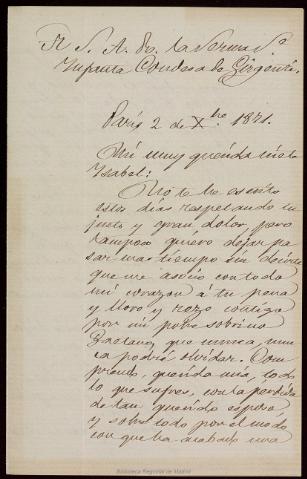 A S. A. R. la Serma Sª
Infanta Condesa de Girgenti.
París 2 de Xbre 1871.
Mi muy querida nieta
Isabel:
No te he escrito
estos dias respetando tu
justo y gran dolor, pero
tampoco quiero dejar pa
sar mas tiempo sin decirte
que me asocio con todo
mi corazon á tu pena
y lloro y rezo contigo
por mi pobre sobrino
Gaetano, que nunca, nun
ca podré olvidar. Com
prendo, querida mia, todo
lo que sufres, con la perdida
de tan querido esposo,
y sobre todo por el modo
con que ha acabado una
Biblioteca Regional de Madrid